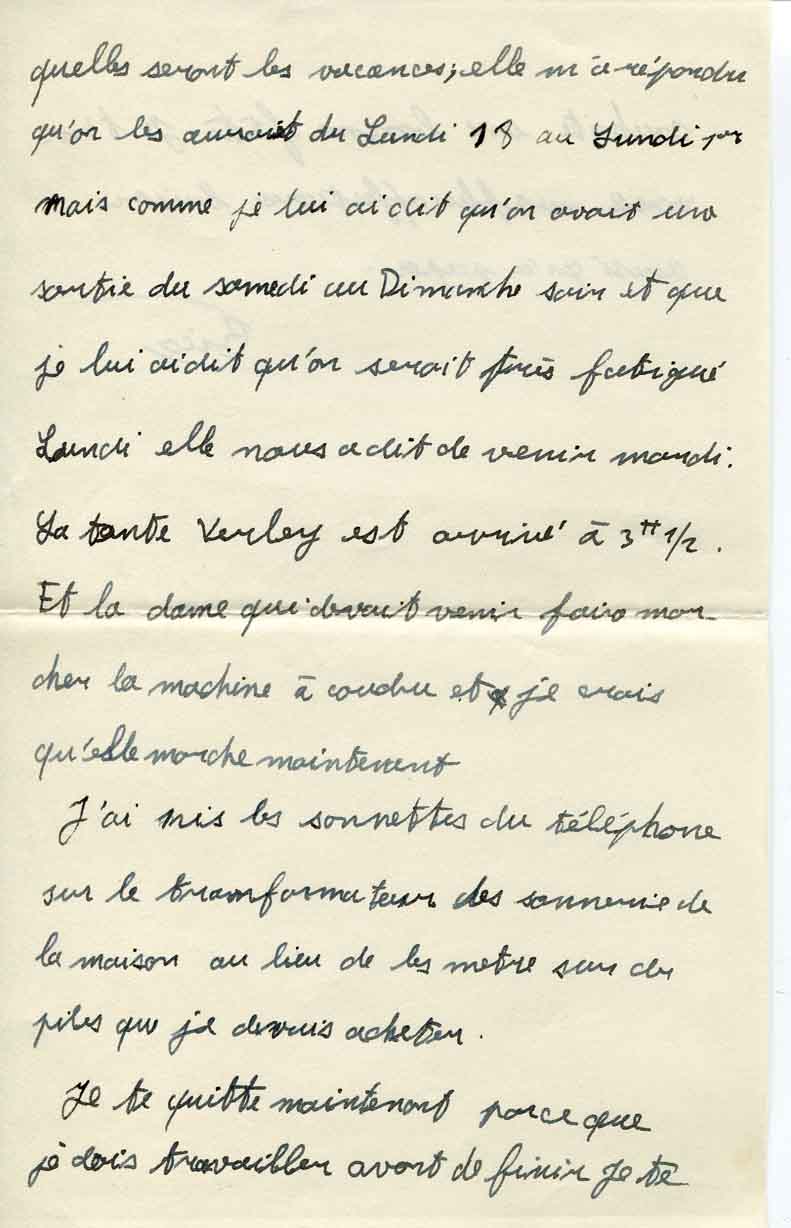 quelles seront les vacances; elle m'a répondu
qu'on les aurait du Lundi 18 au Lundi 1er
mais comme je lui ai dit qu'on avait une
sortie du samedi au Dimanche soir et que
je lui ai dit qu'on serait très fatigué
Lundi elle nous a dit de venir mardi.
La tante Verley est arrivé à 3H 1/2.
Et la dame qui devait venir faire mar-
cher la machine à coudre et je crois
qu'elle marche maintenent
J'ai mis les sonnettes du téléphone
sur le tramformateur des sonnerie de
la maison au lieu de les metre sur des
piles que je devais acheter.
Je te quitte maintenant parce que
je dois travailler avant de finir Je te